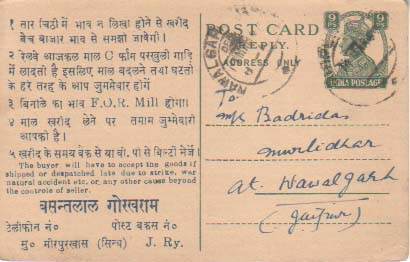 १ तार चिठी में भाव न लिखा होने से खरीद
बेच बाजार भाव से समझी जावेगी।
२ रेलवे आजकल माल C फार्म परखुली गाडि
में लादता है इसलिए माल बदलने तथा घटती
के हरे तरह के आप जुम्मेवार होंगें
३ बिनाले का भाव F.O.R. Mill होगा।
४ माल खरीद लेने पर तमाम जुम्मेवारी
आपकी है।
५ खरीद के समय बेंक से या बी. पी से मिन्टी भेजें।
The buyer will have to accept the goods if
shipped or despatched late due to strike, war
natural accident etc. or any other cause beyond
the controle of seller.
बसन्तलाल गोरखराम
टेलीफोन नं० पोस्ट बकस नं०
मु० मीरपुरखास (सिन्ध) J. Ry.
POST CARD
REPLY.
ADDRESS ONLY
NAWALGARH
9 9
INDIA POSTAGE
To
M/s Badridas
Murlidhar
At. Nawalgarh
(Jaipur)